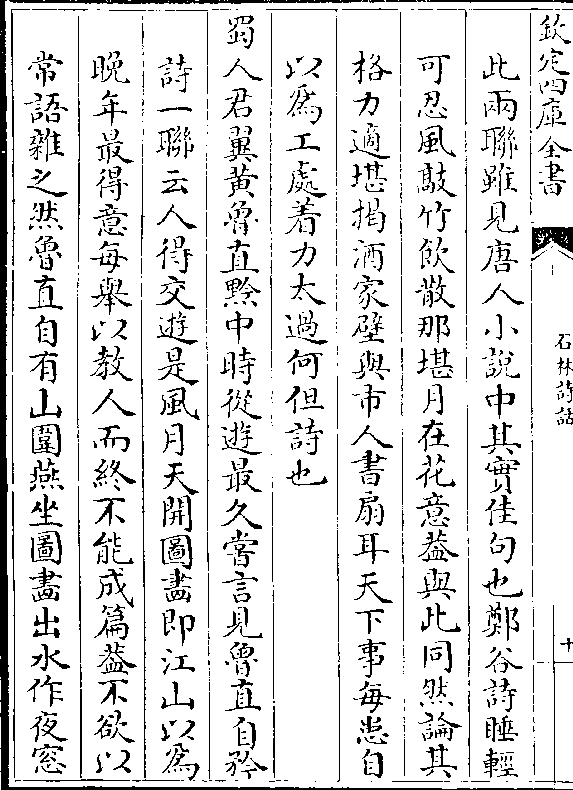 欽定四庫全書
石林詩話
十
此兩聯雖見唐人小說中其實佳句也鄭谷詩睡輕
可忍風敲竹飲散那堪月在花意葢與此同然論其
格力適堪揭酒家壁與市人書扇耳天下事每患自
以爲工處着力太過何但詩也
蜀人君翼黄魯直黔中時從遊最久嘗言見魯直自矜
詩一聯云人得交遊是風月天開圖畫即江山以爲
晩年最得意每舉以教人而終不能成篇葢不欲以
常語雜之然魯直自有山圍燕坐圖畫出水作夜窓